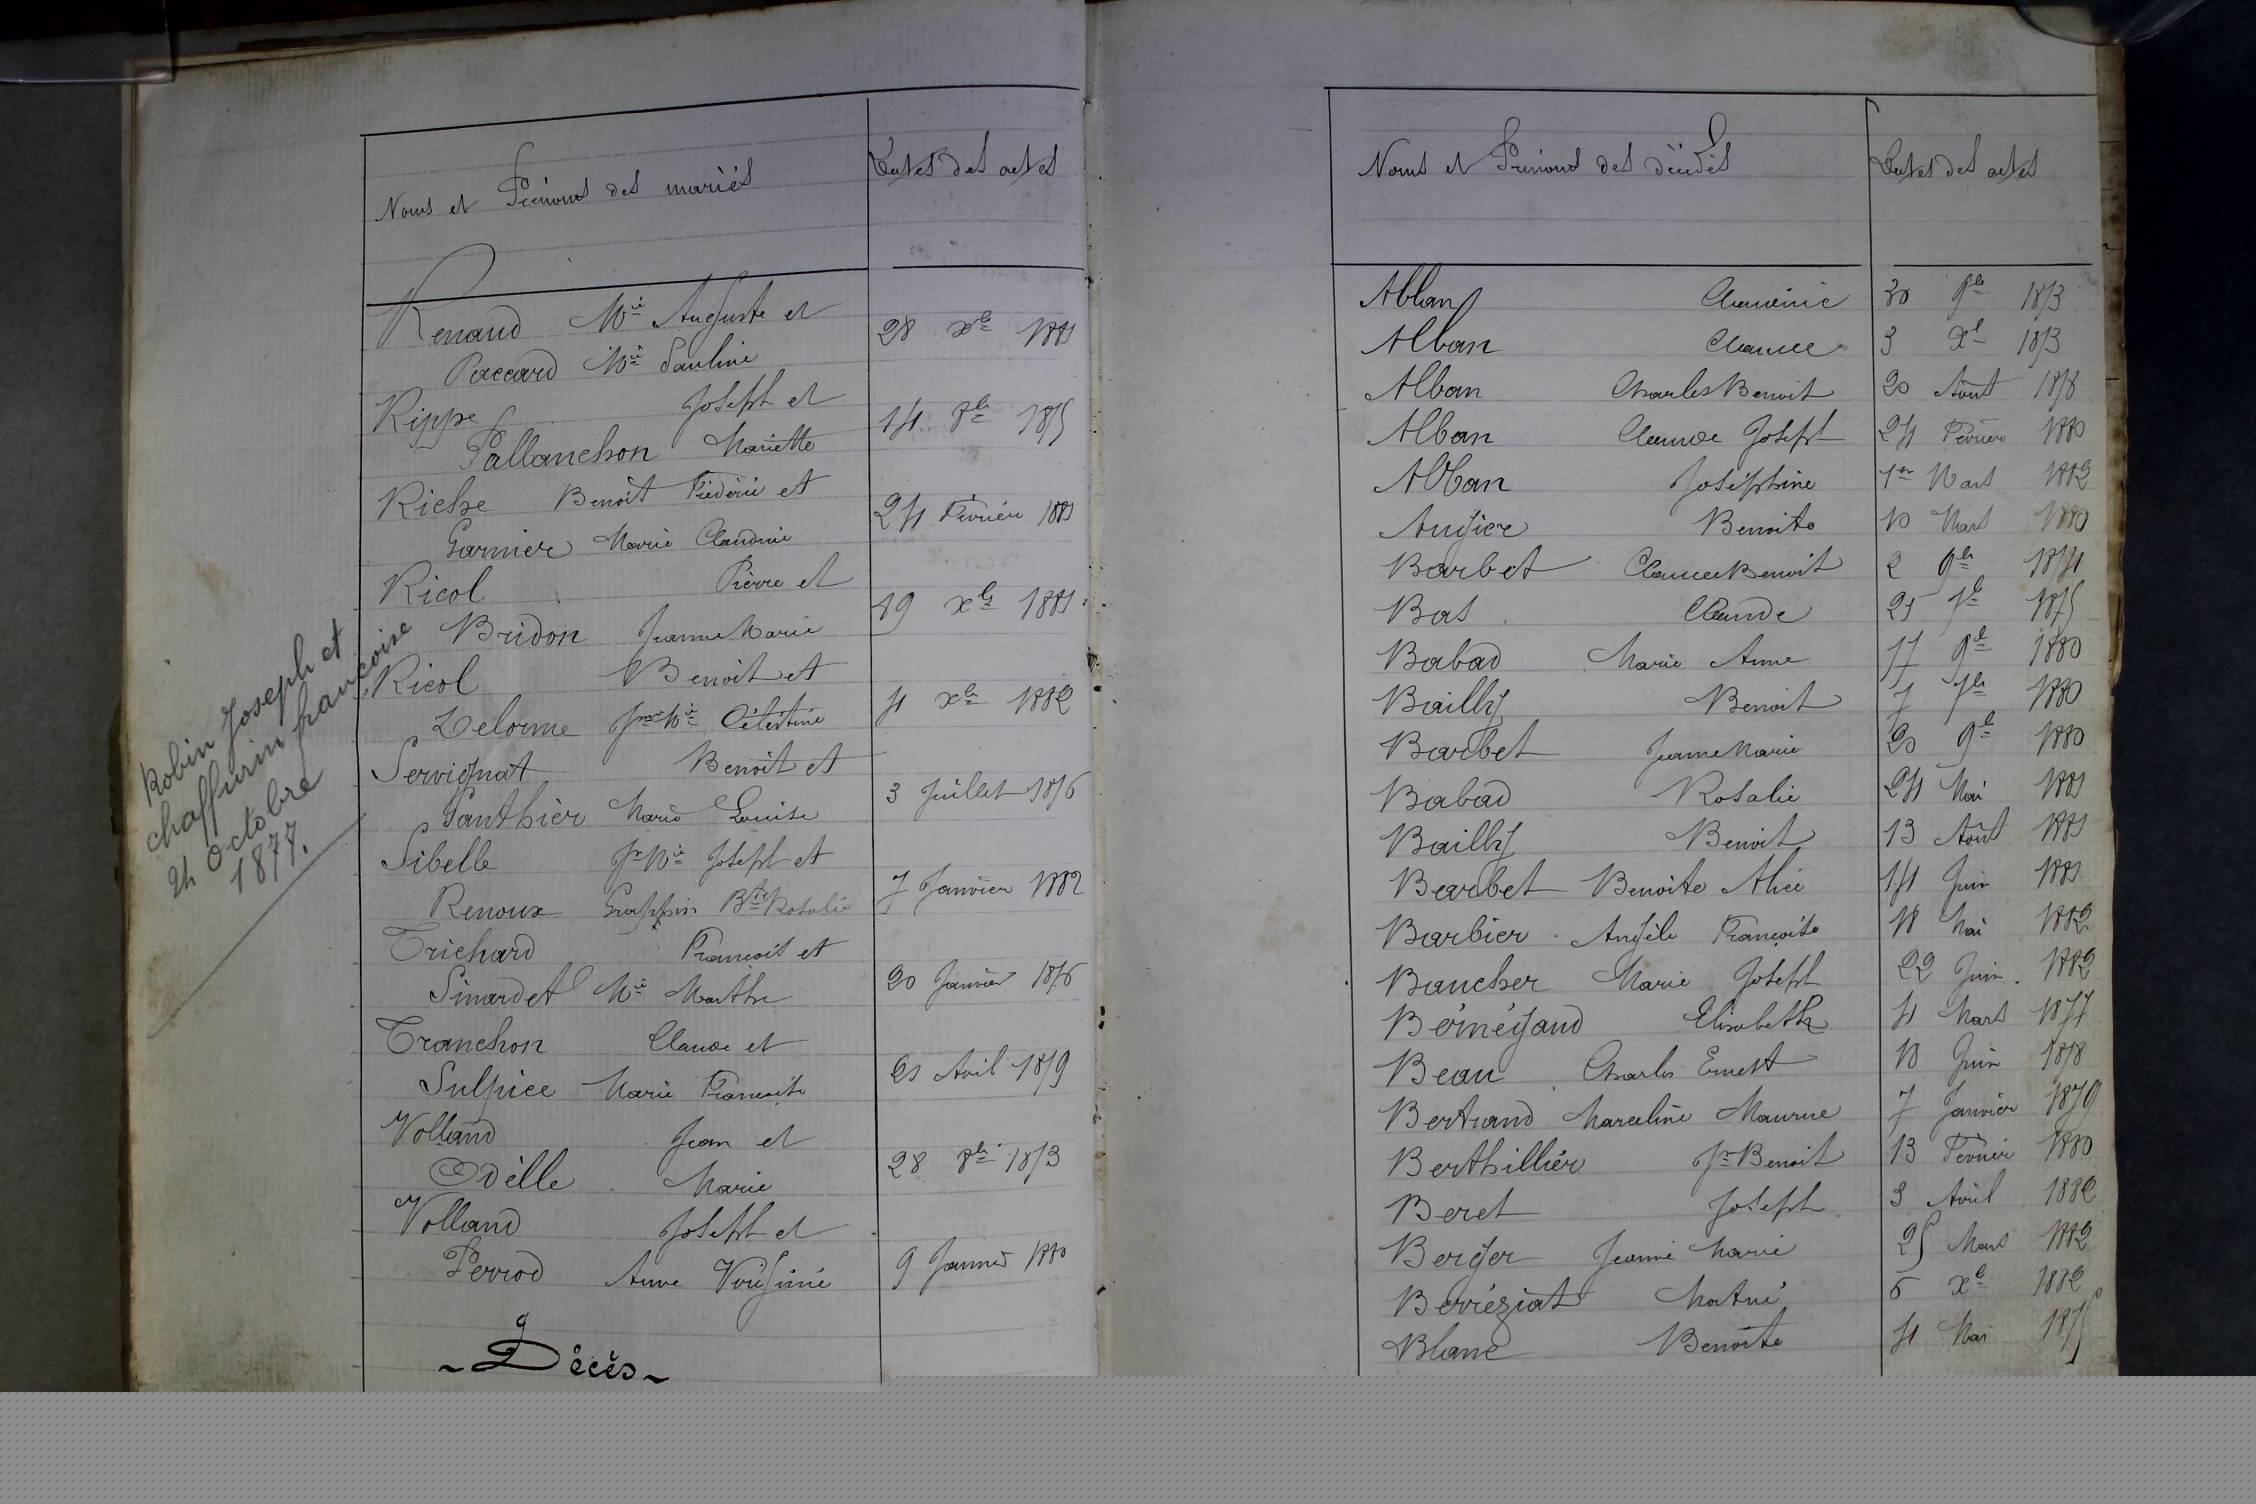 Noms et Prénoms des mariés
Dates des actes
Renaud Mie Auguste et
Paccard Mie Pauline
28 xbre 1881
Rippe Joseph et
Pallanchon Mariette
14 8bre 1875
Riche Benoît Frédéric et
Garnier Marie Claudine
24 Février 1881
Ricol Pierre et
Bridon Jeanne Marie
19 xbre 1881
Ricol Benoit et
Delorme Jne Mie Célestine
4 xbre 1882
Servignat Benoît et
Gauthier Marie Louise
3 Juillet 1876
Sibelle Jn Mie Joseph et
Renoux Grappin Bte Rosalie
7 Janvier 1882
Trichard François et
Sinardet Mie Marthe
20 Janvier 1876
Tranchon Claude et
Sulpice Marie Françoise
21 Avril 1879
Volland Jean et
Odèlle Marie
28 8bre 1873
Volland Joseph et
Perrod Anne Virginie
9 Janvier 1880
~ Décès ~
Robin Joseph et
chaffurin françoise
24 Octobre
1877.
Noms et Prénoms des décédés
Dates des actes
Alban 30 9bre 1873
Alban Claude 3 Xbre 1873
Alban Charles Benoit 20 Août 1878
Alban Claude Joseph 24 Février 1880
Alban Joséphine 1er Mars 1882
Augier Benoite 10 Mars 1880
Barbet Claude Benoit 2 9bre 1874
Bas Claude 21 7bre 1875
Babad Marie Anne 17 9bre 1880
Bailly Benoit 7 7bre 1880
Barbet Jeanne Marie 20 9bre 1880
Babad Rosalie 24 Mai 1881
Bailly Benoit 13 Août 1881
Barbet Benoite Alice 14 Juin 1881
Barbier Angèle Françoise 18 Mai 1882
Baucher Marie Joseph 22 Juin 1882
Bérnégaud Elisabeth 4 Mars 1877
Beau Charles Ernest 18 Juin 1878
Bertrand Marceline Maurice 7 Janvier 1879
Berthillier Jn Benoit 13 Février 1880
Beret Joseph 3 Avril 1882
Berger Jeanne Marie 25 Mars 1882
Berréziat 6 xbre 1882
Blanc Benoîte 4 Mai 1875